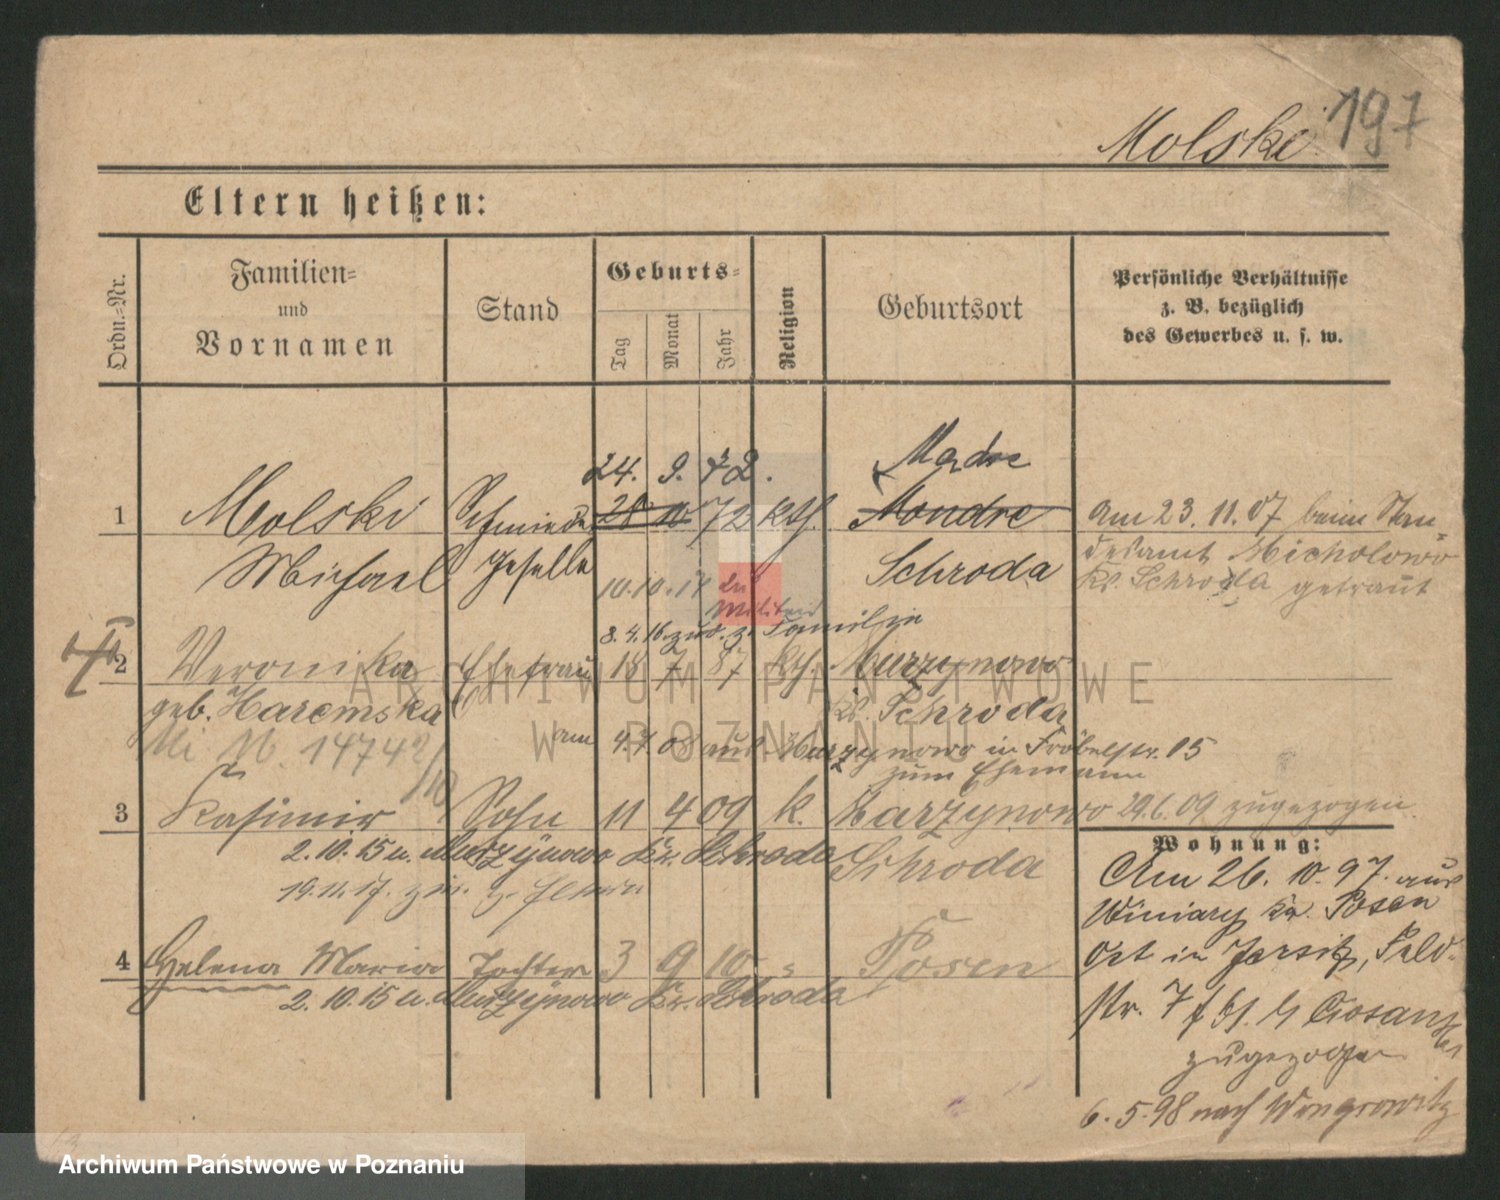 197
Molski
Eltern heißen:
Ordn.-Nr.
Familien-
und
Vornamen
Stand
Geburts-
Tag
Monat
Jahr
Religion
Geburtsort
Persönliche Verhältnisse
z. B. bezüglich
des Gewerbes u. s. w.
24. 9. 72.
Madre
1 Molski Schmiede 28 10 72 kth. Mondre
Michael geselle Schroda
Am 23. 11. 07 beim Stan=
desamt Nicholowo
Kr. Schroda getraut
10.10.14 zu
Militär
8. 4. 16. zur. z. Familie
2 Veronika Ehefrau 18 7 87 kth. Murzynowo
geb. Haremska Kr. Schroda
14742
am 4. 7. 08 aus Murzynowo in Fröbelstr. 15
zum Ehemann
3 Kasimir Sohn 11 4 09 k. Murzynowo 29.6.09 zugezogen
2. 10. 15 u. Murzynowo Kr. Schroda Schroda
19. 11. 17. z. Eltern
Wohnung:
Am 26. 10. 97. aus
Winiary Kr. Posen
Ort in Jersitz, Feld-
str. 7 bei
zugezogen
6. 5. 98 nach Wongrowitz
4 Helena Maria Tochter 3 9 10 Posen
2. 10. 15 u. Murzynowo Kr. Schroda
ARCHIWUM PAŃSTWOWE
W POZNANIU
Archiwum Państwowe w Poznaniu